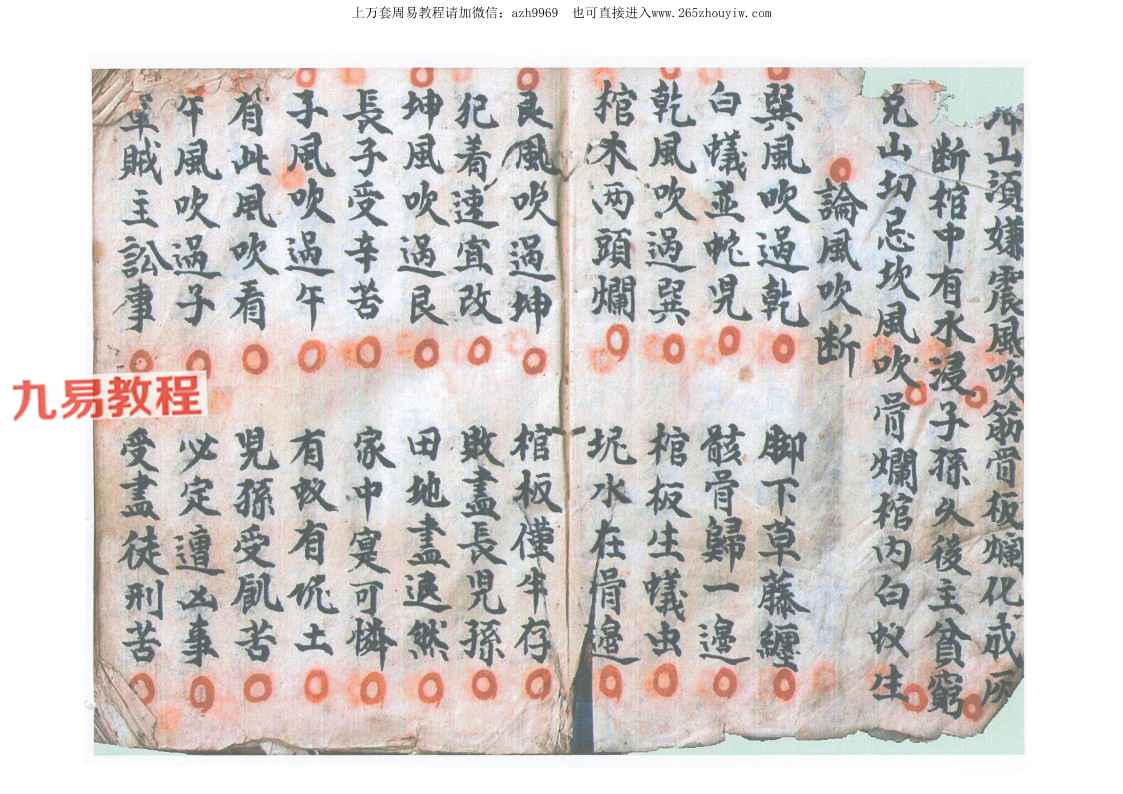 上万套周易教程请加微信：azh9969　也可直接进入www.265zhouyiw.com
山須嫌震風吹筋骨板爛化成灰
断棺中有水浸子孫久後主貧窮
兑山切忌坎風吹骨爛棺内白蚁生
論風吹断
巽風吹過乾　脚下草藤纏
白蟻並蛇児　骸骨歸一邊
乾風吹過巽　棺板生蟻虫
棺木两頭爛　坭水在骨邊
艮風吹過坤　棺板僅半存
犯着速宜改　敗盡長児孫
坤風吹過艮　田地盡退然
長子受辛苦　家中寔可憐
子風吹過午　有蚁有坭土
有此風吹看　児孫受飢苦
午風吹過子　必定遭凶事
賊主訟事　受盡徒刑苦
九易教程